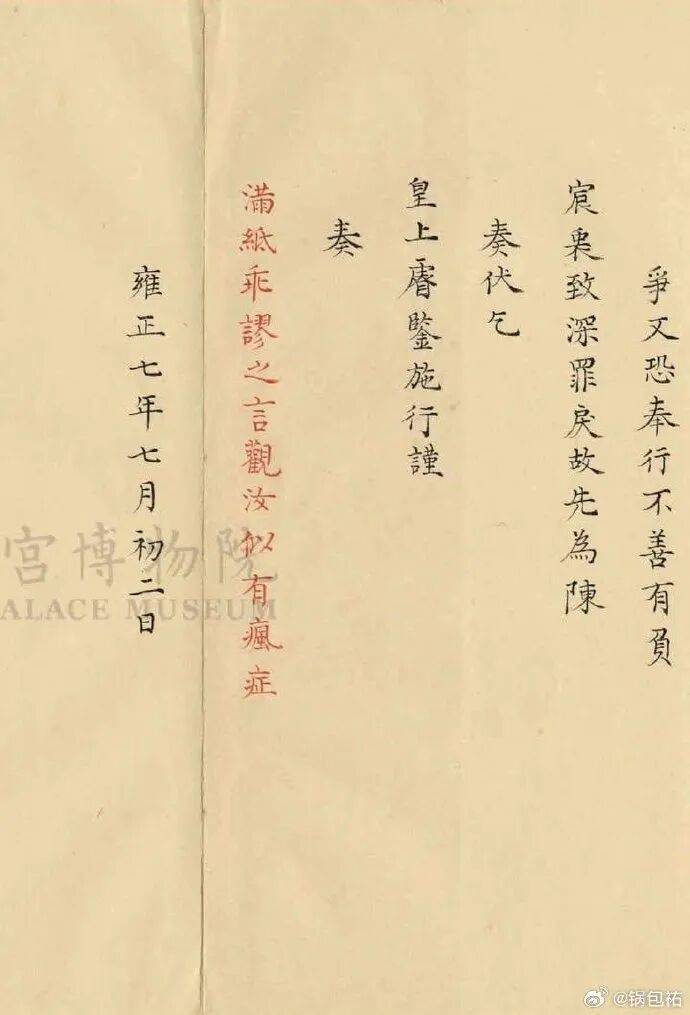 爭又恐奉行不善有負
宸衷致深罪戾故先為陳
奏伏乞
皇上睿鑒施行謹
奏
滿紙乖謬之言觀汝似有瘋症
雍正七年七月初二日
宮博物院
ALACE MUSEUM
@锅包祐